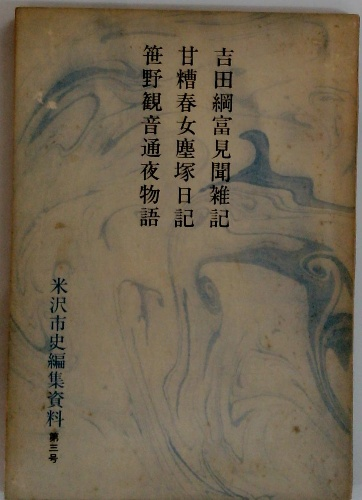 吉田綱富見聞雑記
甘糟春女塵塚日記
笹野観音通夜物語
米沢市史編集資料 第三号